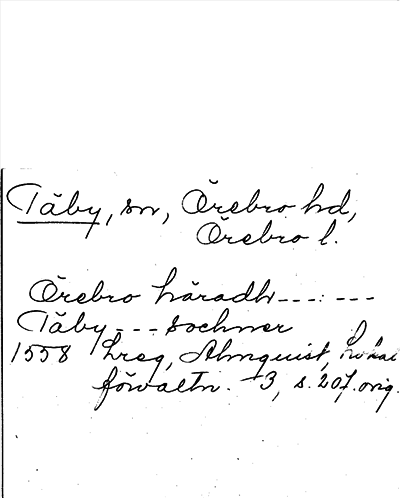 Täby, sn, Örebro hd,
Örebro l.
Örebro häradh--- ---
Täby --- sochner
1558 hreg, Almquist, Lokal
förvaltn. 3, s. 207. orig.